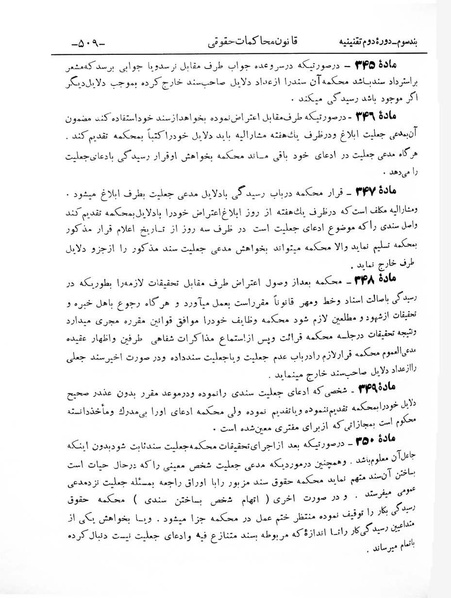 بند سوم ـ دورهٔ دوم تقنینیه قانون محاکمات حقوقی ـ۵۰۹ـ
مادهٔ ۳۴۵ ـ درصورتیکه درسروعده جواب طرف مقابل نرسد ویا جوابی برسد که مشعر
براسترداد سند باشد محکمه آن سند را از عداد دلایل صاحب سند خارج کرده بموجب دلایل دیگر
اگر موجود باشد رسیدگی میکند .
مادهٔ ۳۴۶ ـ درصورتیکه طرف مقابل اعتراض نموده بخواهد از سند خود استفاده کند مضمون
آن بمدعی جعلیت ابلاغ ودرظرف یك هفته مشارالیه باید دلایل خود را کتباً بمحکمه تقدیم کند .
هرگاه مدعی جعلیت در ادعای خود باقی ماند محکمه بخواهش او قرار رسیدگی بادعای جعلیت
را می‌دهد .
مادهٔ ۳۴۷ ـ قرار محکمه درباب رسیدگی با دلایل مدعی جعلیت بطرف ابلاغ میشود .
ومشارالیه مکلف است که درظرف یك هفته از روز ابلاغ اعتراض خود را با دلایل بمحکمه تقدیم کند
واصل سندی را که موضوع ادعای جعلیت است در ظرف سه روز از تاریخ اعلام قرار مذکور
بمحکمه تسلیم نماید والا محکمه میتواند بخواهش مدعی جعلیت سند مذکور را از جزو دلایل
طرف خارج نماید .
مادهٔ ۳۴۸ ـ محکمه بعد از وصول اعتراض طرف مقابل تحقیقات لازمه را بطوریکه در
رسیدگی باصالت اسناد وخط ومهر قانوناً مقرر است بعمل میآورد و هرگاه رجوع باهل خبره و
تحقیقات از شهود و مطلعین لازم شود محکمه وظایف خود را موافق قوانین مقرره مجری میدارد
ونتیجه تحقیقات درجلسه محکمه قرائت وپس از استماع مذاکرات شفاهی طرفین واظهار عقیده
مدعی‌العموم محکمه قرار لازم را درباب عدم جعلیت ویا جعلیت سند داده ودر صورت اخیر سند جعلی
را از عداد دلایل صاحب سند خارج مینماید .
مادهٔ ۳۴۹ ـ شخصی که ادعای جعلیت سندی را نموده ودرموعد مقرر بدون عذر صحیح
دلایل خود را بمحکمه تقدیم ننموده ویا تقدیم نموده ولی محکمه ادعای او را بی‌مدرك ومأخذ دانسته
محکوم است بمجازاتی که از برای مفتری معین شده است .
مادهٔ ۳۵۰ ـ درصورتیکه بعد از اجرای تحقیقات محکمه جعلیت سند ثابت شود بدون اینکه
جاعل آن معلوم باشد . وهمچنین درموردیکه مدعی جعلیت شخص معینی را که درحال حیات است
بساختن آن سند متهم نماید محکمه حقوق سند مزبور را با اوراق راجعه بمسئله جعلیت نزد مدعی
عمومی میفرستد . و در صورت اخری ( اتهام شخص بساختن سندی ) محکمه حقوق
رسیدگی بکار را توقیف نموده منتظر ختم عمل در محکمه جزا میشود . وبا بخواهش یکی از
متداعیین رسیدگی کار را تا اندازهٔ که مربوط بسند متنازع فیه وادعای جعلیت نیست دنبال کرده
باتمام میرساند .